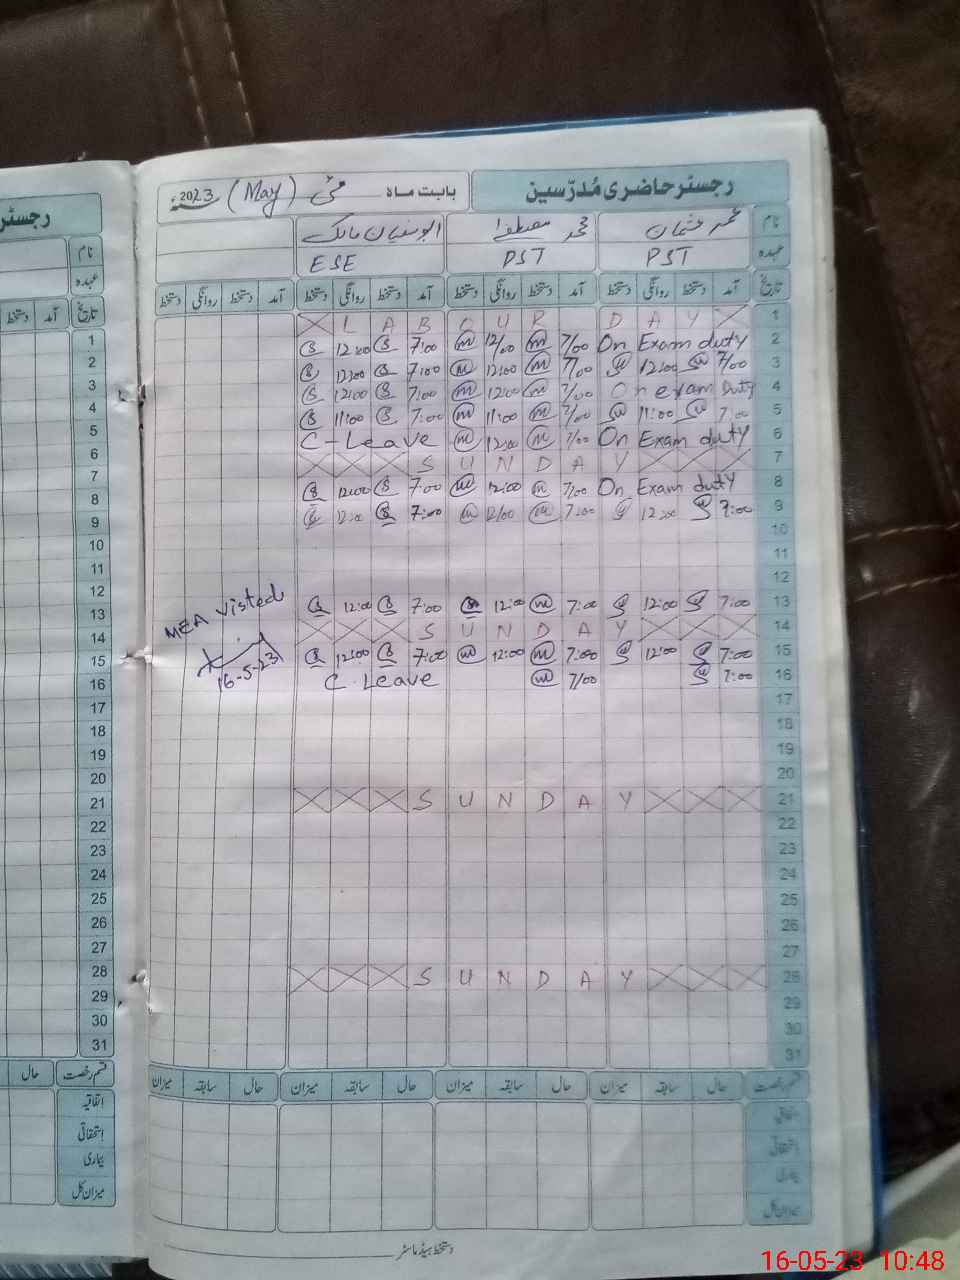 رجسٹر حاضری مُدرّسین
بابت ماہ مئی (May) 2023ء
نام محمد عثمان محمد مصطفیٰ ابوسفیان مالک
عہدہ PST PST ESE
تاریخ آمد دستخط روانگی دستخط آمد دستخط روانگی دستخط آمد دستخط روانگی دستخط آمد دستخط روانگی دستخط
LABOUR DAY 1
12:00 7:00 12/00 7/00 On Exam duty 2
12:00 7:00 12:00 7/00 12:00 7/00 3
12:00 7:00 12:00 7/00 On exam duty 4
11:00 7:00 11:00 7/00 11:00 7:00 5
C-Leave 12:00 7/00 On Exam duty 6
SUNDAY 7
12:00 7:00 12:00 7/00 On Exam duty 8
12:00 7:00 12/00 7:00 12:00 7:00 9
10
11
12
MEA visted 12:00 7:00 12:00 7:00 12:00 7:00 13
SUNDAY 14
16-5-23 12:00 7:00 12:00 7:00 12:00 7:00 15
C.Leave 7/00 7:00 16
17
18
19
20
SUNDAY 21
22
23
24
25
26
27
SUNDAY 28
29
30
31
قسم رخصت حال سابقہ میزان حال سابقہ میزان حال سابقہ میزان حال سابقہ میزان
دستخط ہیڈ ماسٹر
رجسٹر
نام
عہدہ
تاریخ آمد دستخط
1
2
3
4
5
6
7
8
9
10
11
12
13
14
15
16
17
18
19
20
21
22
23
24
25
26
27
28
29
30
31
قسم رخصت حال
اتفاقیہ
استحقاقی
بیماری
میزان کل
16-05-23 10:48